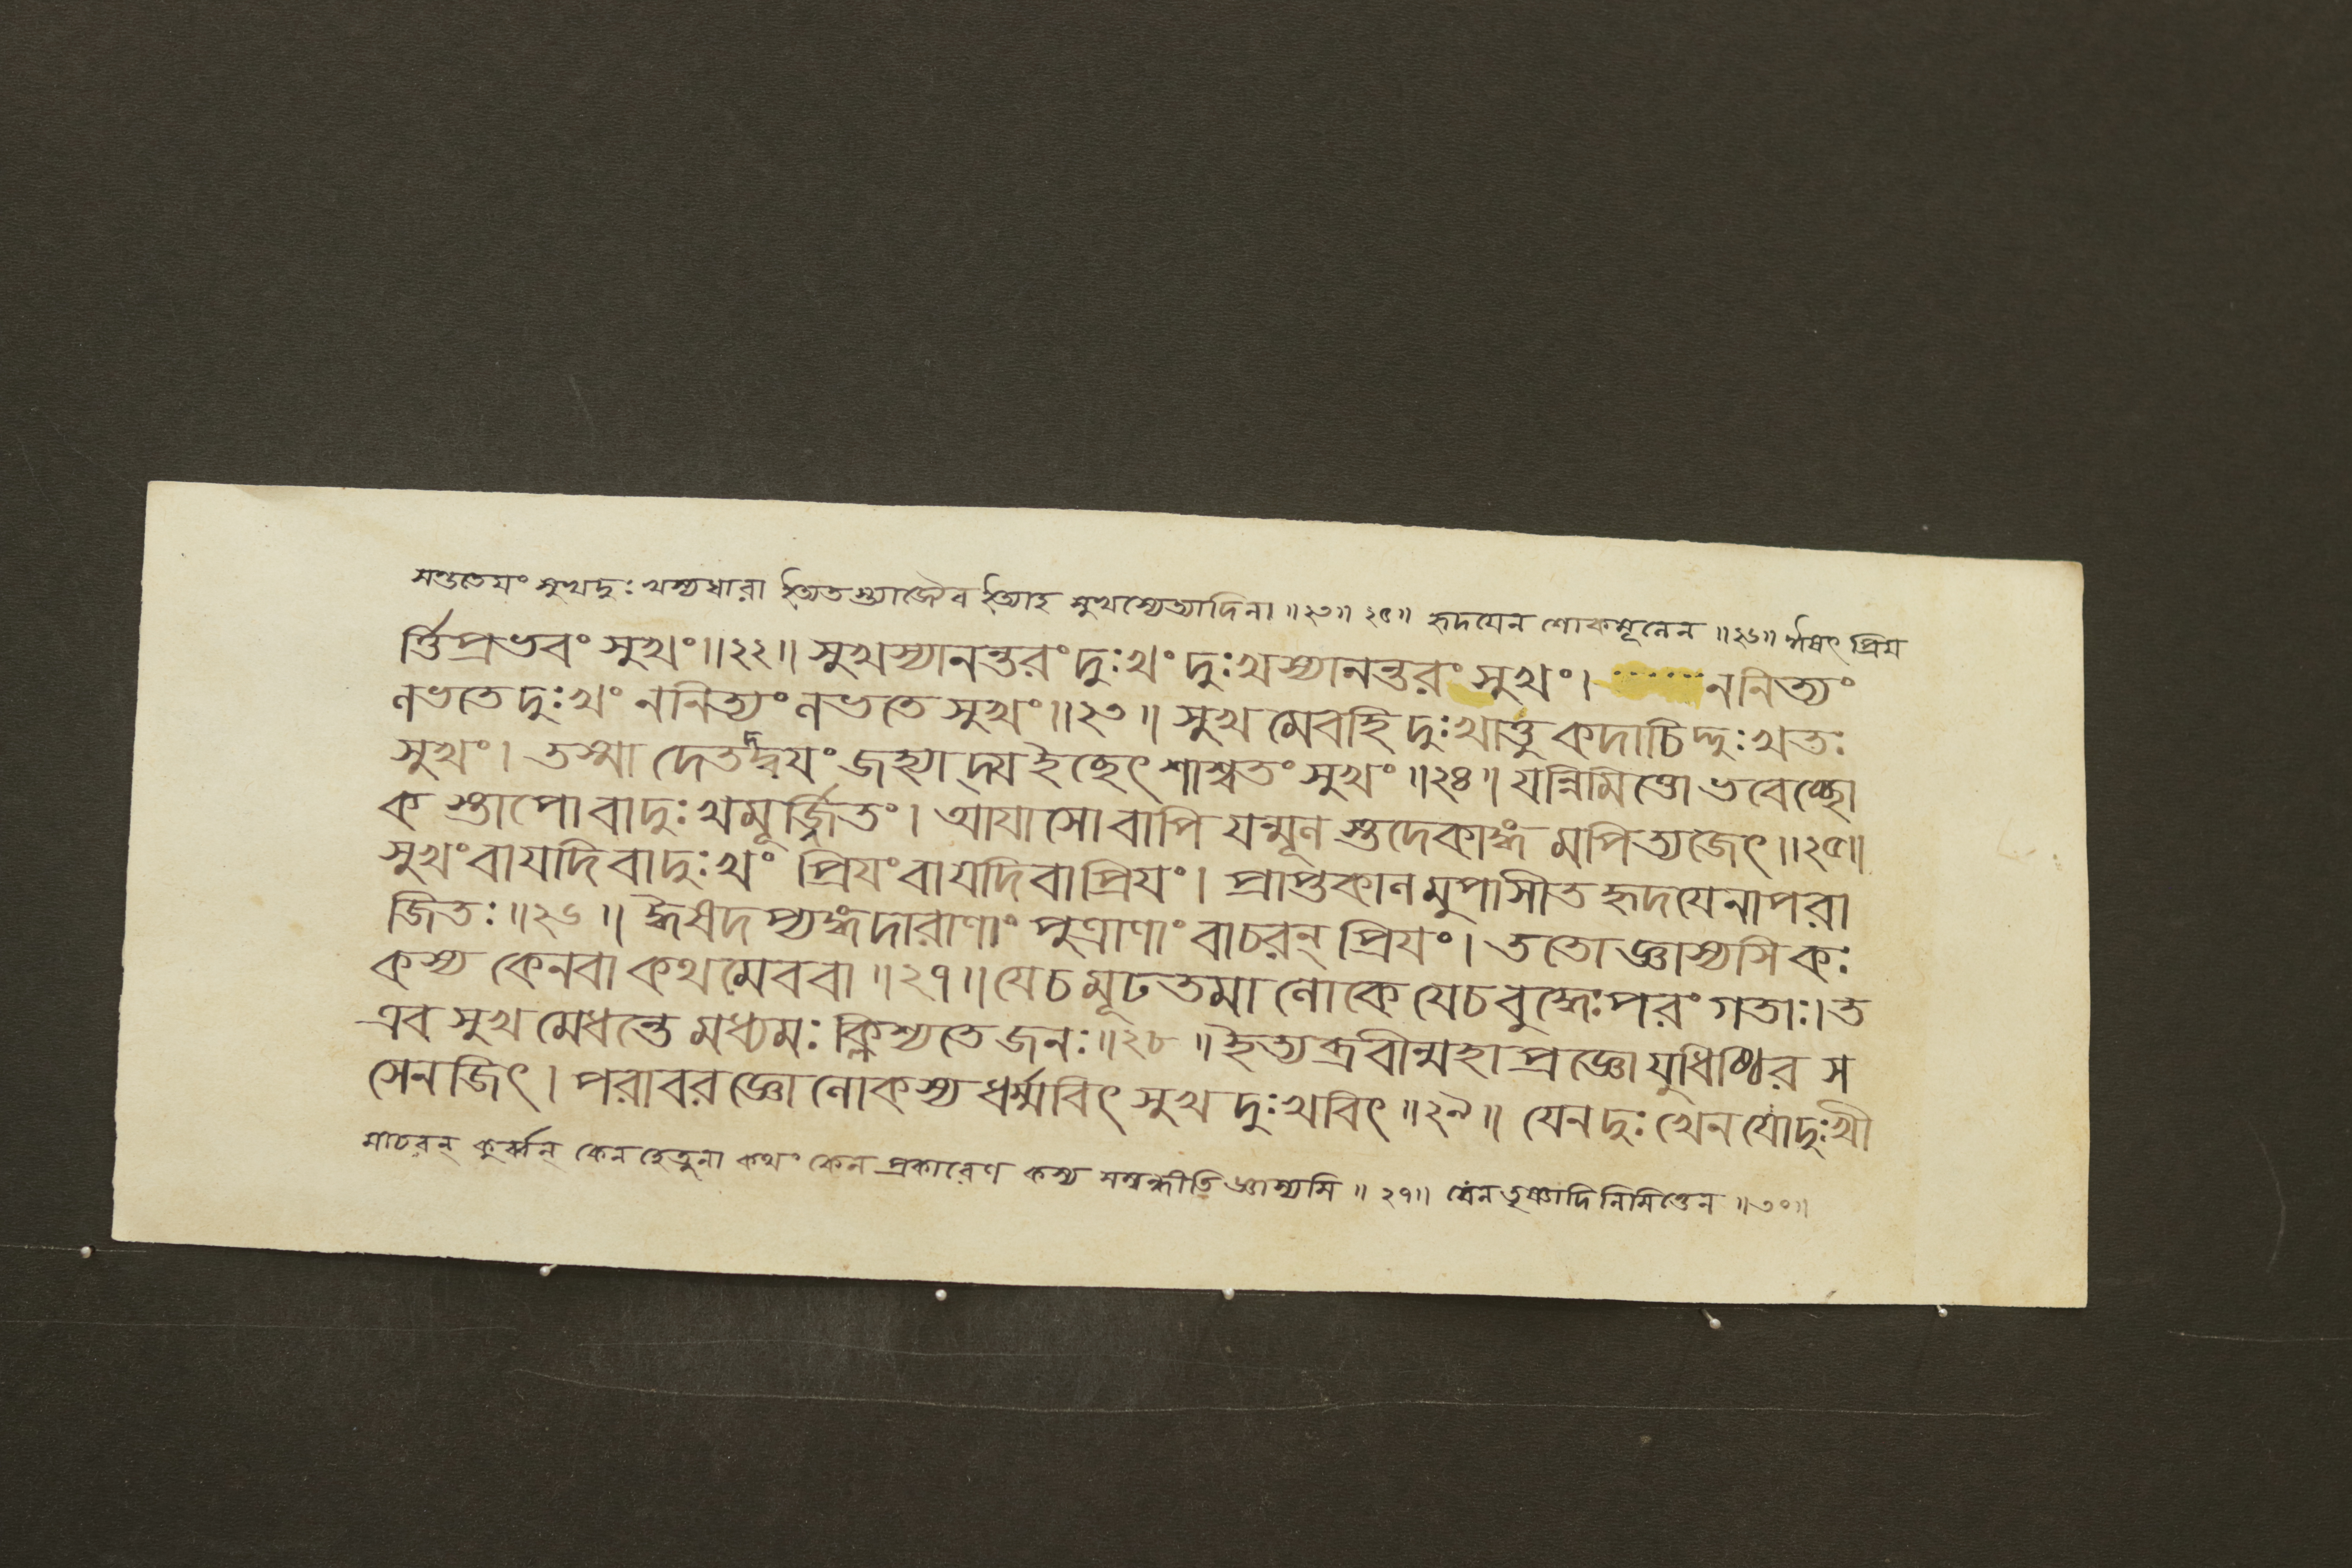 সুখদুঃখস্যধারা সুখস্যেত্যাদিনা ॥২৩॥ ২৫॥ হৃদয়েন শোকমূলেন ॥২৬॥ ঈষৎ প্রিয়
র্ত্তিপ্রভবং সুখং॥২২॥ সুখস্যানন্তরং দুঃখং দুঃখস্যানন্তরং সুখং। ননিত্যং
লভতে দুঃখং ননিত্যং লভতে সুখং॥২৩॥ সুখমেবহি দুঃখাত্তু কদাচিদ্দুঃখতঃ
সুখং। তস্মাদেতদ্দ্বয়ং জহ্যাদ্য ইচ্ছেৎ শাশ্বতং সুখং॥২৪॥ যন্নিমিত্তো ভবেচ্ছো
কস্তাপোবাদুঃখমূর্জ্জিতং। আয়াসোবাপি যন্মূলস্তদেকাঙ্গমপিত্যজেৎ॥২৫॥
সুখংবাযদিবাদুঃখং প্রিয়ংবাযদিবাপ্রিয়ং। প্রাপ্তকালমুপাসীত হৃদয়েনাপরা
জিতঃ॥২৬॥ ঈষদপ্যঙ্গদারাণাং পুত্রাণাং বাচরন্ প্রিয়ং। ততো জ্ঞাস্যসি কঃ
কস্য কেনবা কথমেববা॥২৭॥ যেচমূঢতমা লোকে যেচবুদ্ধেঃপরংগতাঃ।ত
এব সুখমেধন্তে মধ্যমঃ ক্লিশ্যতে জনঃ॥২৮॥ ইত্যব্রবীন্মহাপ্রজ্ঞো যুধিষ্ঠির স
সেনজিৎ। পরাবরজ্ঞো লোকস্য ধর্ম্মবিৎ সুখদুঃখবিৎ॥২৯॥ যেনদুঃখেনযোদুঃখী
মাচরন্ কুর্ব্বন্ কেনহেতুনা কথং কেনপ্রকারেণ কস্য সম্বন্ধীতি জ্ঞাস্যসি॥২৭॥ যেনতৃষ্ণাদিনিমিত্তেন॥৩০॥